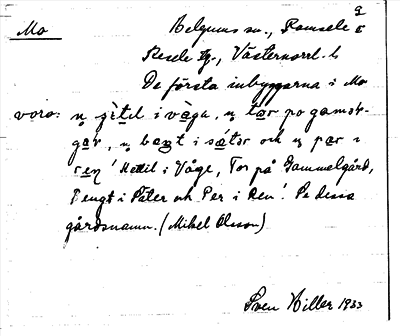 Mo
Helgums sn., Ramsele o
Resele tg., Västernorrl. l.
De första inbyggarna i Mo
voro: n gètil i våga, n tor po gamst-
gar, n baŋt i sáter och n par i
ren! Kettil i Våge, Tor på Gammelgård,
Bengt i Säter och Per i Ren! Se dessa
gårdsnamn. (Mikel Olsson)
Sven Hiller 1933